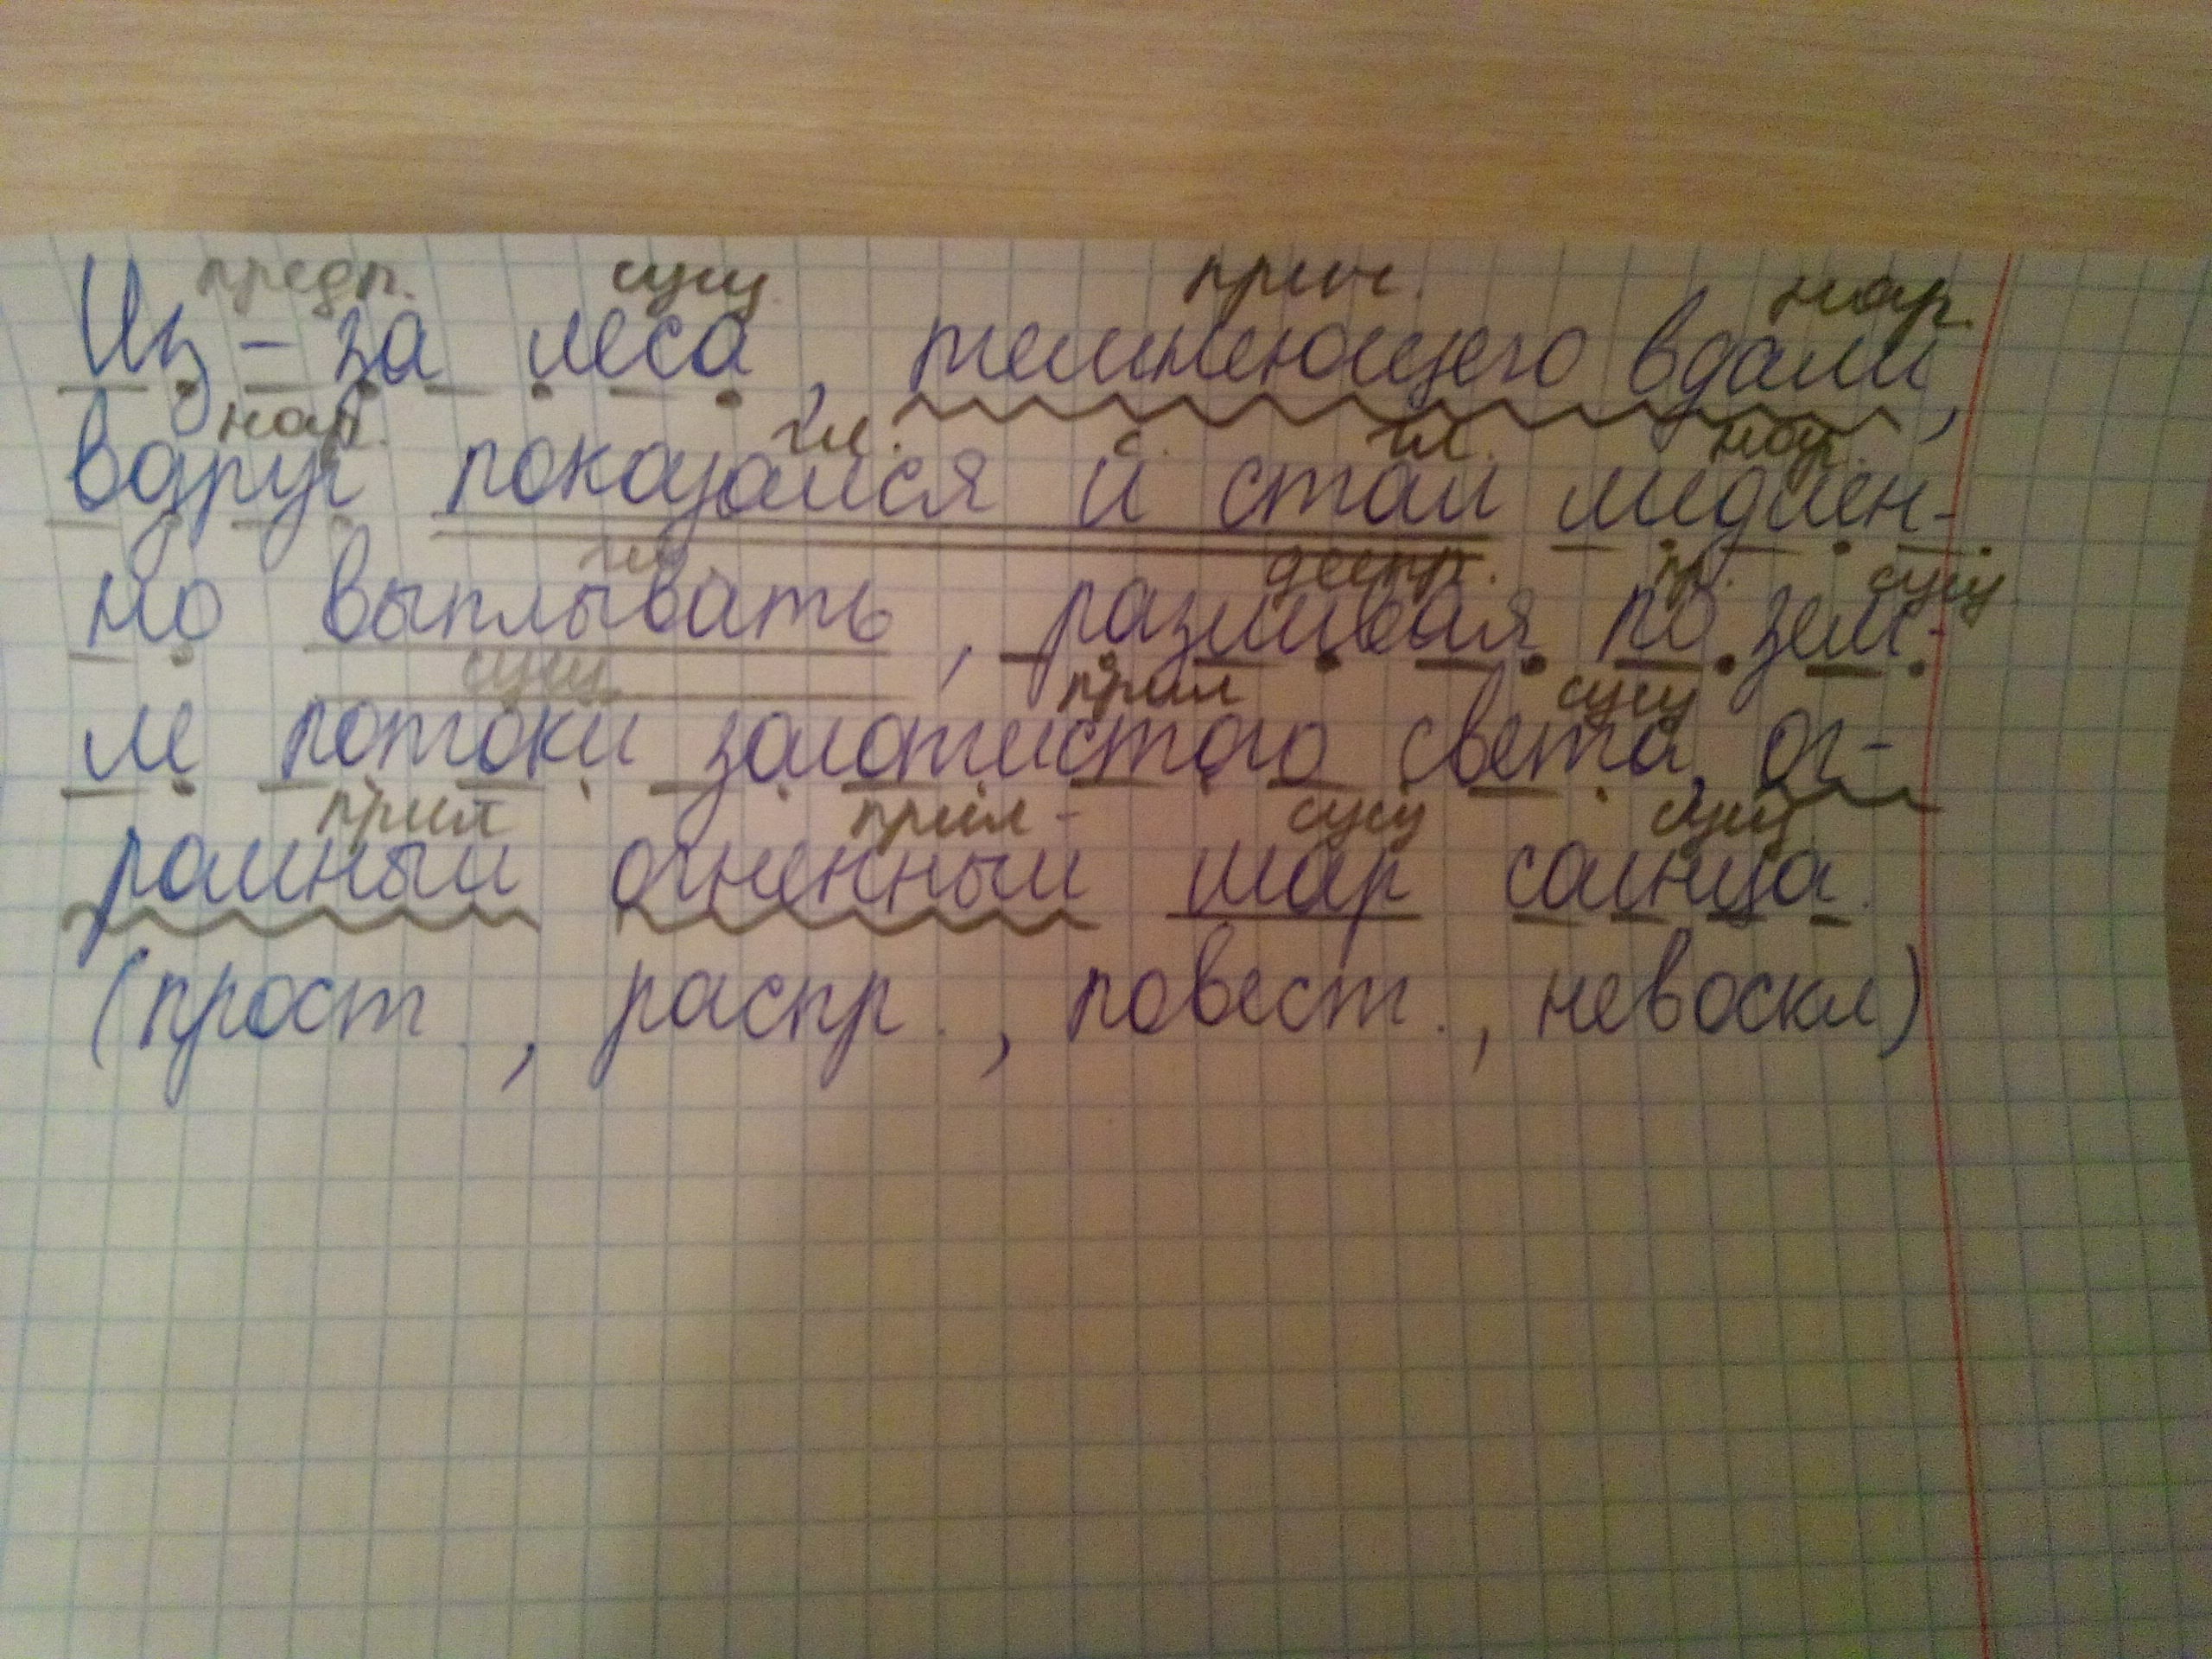 предп. сущ. прич. нар.
Из-за леса, темнеющего вдали,
нар. гл. с. гл. нар.
вдруг показался и стал медлен-
гл. деепр. пр. сущ.
но выплывать, разливая по зем-
сущ. прил сущ
ле потоки золотистого света, ог-
прил прил- сущ сущ
ромный огненный шар солнца.
(прост., распр., повест., невоскл)